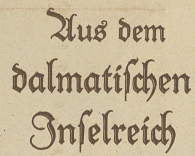 Aus dem
dalmatiſchen
Inſelreich